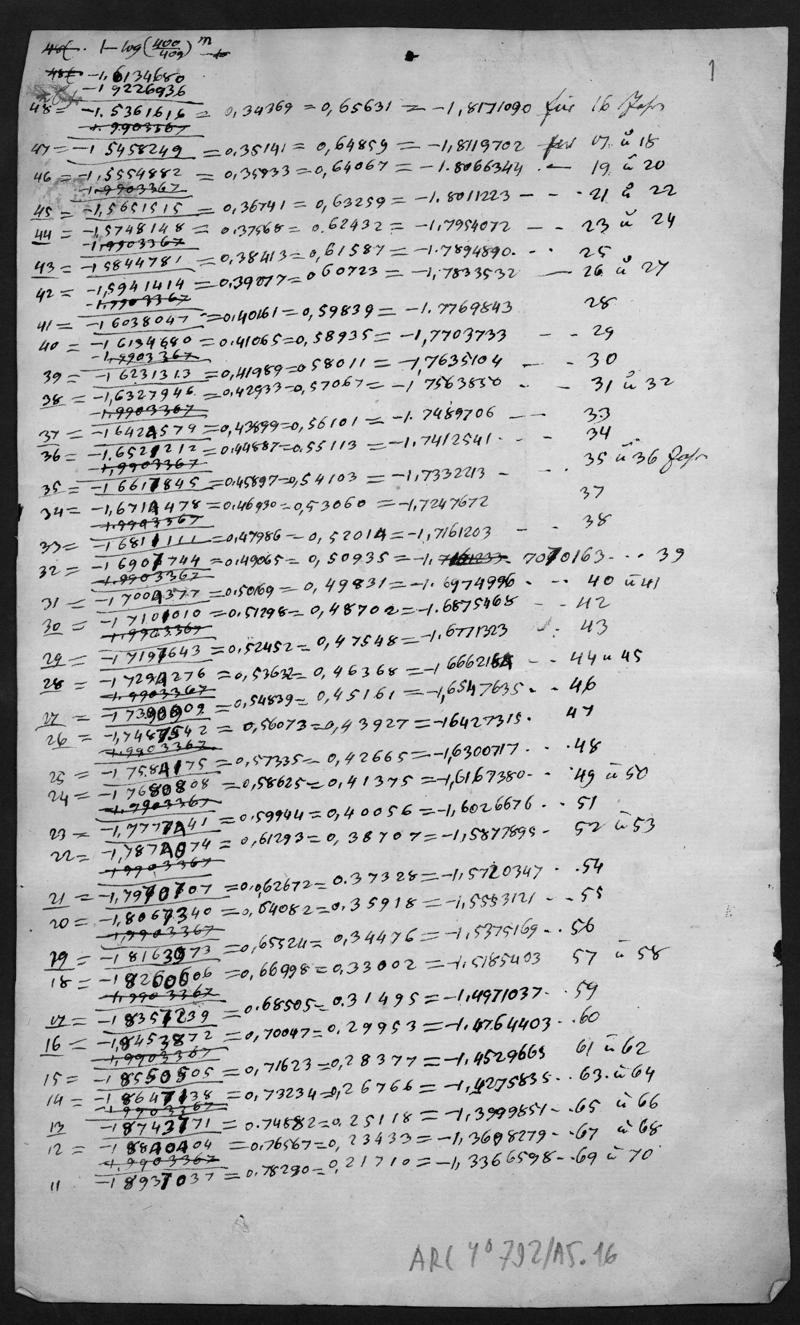 1 – log (400/409)^m
1
–1,6134680
–1 9226936
48 = –1.5361616 = 0,34369 = 0,65631 = –1,8171090 für 16 Jahr
–1.9903367
47 = –1 5458249 = 0,35141 = 0,64859 = –1,8119702 für 17 ü 18
46 = –1,5554882 = 0,35933 = 0,64067 = –1.8066344 – 19 ü 20
–1.9903367
45 = –1,5651515 = 0,36741 = 0,63259 = –1.8011223 – – 21 ü 22
44 = –1,5748148 = 0.37568 = 0.62432 = –1.7954072 – – 23 ü 24
–1,9903367
43 = –1 5844781 = 0,38413 = 0,61587 = –1.7894890 . . 25
42 = –1,5941414 = 0,39277 = 0 60723 = –1,7833532 — 26 ü 27
–1.9903367
41 = –1 6038047 = 0.40161 = 0,59839 = –1.7769843 28
40 = –1 6134680 = 0.41065 = 0,58935 = –1,7703733 – – 29
–1.9903367
39 = –1 6231313 = 0,41989 = 0.58011 = –1,7635104 – – 30
38 = –1,6327946 = 0,42933 = 0,57067 = –1 7563850 – – 31 ü 32
–1.9903367
37 = –1 6424579 = 0,43899 = 0,56101 = –1.7489706 – – 33
36 = –1.6521212 = 0,44887 = 0.55113 = –1.7412541 . . 34
–1,9903367
35 = –1 6617845 = 0,45897 = 0,54103 = –1,7332213 – – 35 ü 36 Jahr
34 = –1,6714478 = 0.46930 = 0,53060 = –1,7247672 37
–1.9903367
33 = –1 6811111 = 0,47986 = 0,52014 = –1,7161203 – – 38
32 = –1 6907744 = 0.49065 = 0,50935 = –1.7161233 7070163 . . . 39
–1.9903367
31 = –1 7004377 = 0.50169 = 0,49831 = –1.6974996 . . . 40 ü 41
30 = –1 7101010 = 0.51298 = 0,48702 = –1.6875468 – – 42
–1.9903367
29 = –1 7197643 = 0.52452 = 0,47548 = –1.6771323 . . 43
28 = –1 7294276 = 0,53632 = 0,46368 = –1 6662184 . . 44 ü 45
–1.9903367
27 = –1 7390909 = 0,54839 = 0,45161 = –1,6547635 . . 46
26 = –1,7487542 = 0,56073 = 0,43927 = –16427315 . 47
–1.9903367
25 = –1 7584175 = 0,57335 = 0,42665 = –1,6300717 . . 48
24 = –1 7680808 = 0,58625 = 0,41375 = –1,6167380 . . 49 ü 50
–1.9903367
23 = –1,7777441 = 0.59944 = 0,40056 = –1,6026676 . . 51
22 = –1,7874074 = 0,61293 = 0,38707 = –1,5877895 – 52 ü 53
–1 9903367
21 = –1,7970707 = 0,62672 = 0.37328 = –1,5720347 . . 54
20 = –1,8067340 = 0,64082 = 0.35918 = –1,5553121 – – 55
–1,9903367
19 = –1 8163973 = 0,65524 = 0,34476 = –1,5375169 . . 56
18 = –1 8260606 = 0,66998 = 0,33002 = –1.5185403 57 ü 58
–1,9903367
17 = –1 8357239 = 0.68505 = 0.31495 = –1.4971037 . . 59
16 = –1,8453872 = 0,70047 = 0.29953 = –1.4764403 . . 60
–1,9903367
15 = –1 8550505 = 0,71623 = 0,28377 = –1,4529665 61 ü 62
14 = –1 8647138 = 0,73234 = 0,26766 = –1,4275835 . . 63 . ü 64
–1 9903367
13 = –1 8743771 = 0.74882 = 0.25118 = –1,3999851 – . 65 ü 66
12 = –1 8840404 = 0.76567 = 0,23433 = –1,3698279 – . 67 ü 68
–1.9903367
11 –1 8937037 = 0.78290 = 0,21710 = –1,3366598 – . 69 ü 70
ARC 4° 792/A5.16